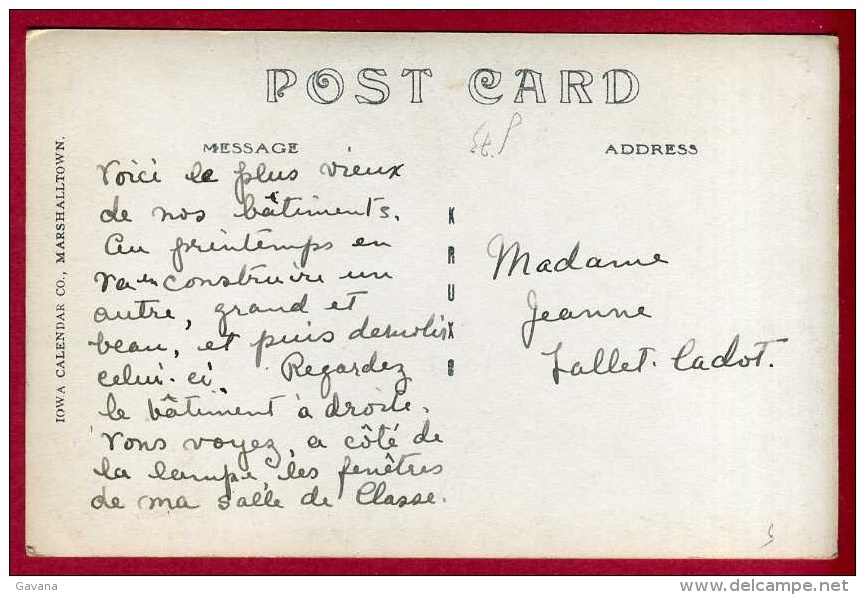 POST CARD
Et. P
MESSAGE
ADDRESS
IOWA CALENDAR CO., MARSHALLTOWN.
Voici le plus vieux
de nos bâtiments.
Au printemps en
va en construire un
autre, grand et
beau, et puis demolir
celui-ci. Regardez
le bâtiment à droite.
Vous voyez, a côté de
la lampe, les fenêtres
de ma salle de Classe.
KRUXO
Madame
Jeanne
Jallet-Cadot.
Gavana
delcampe.net